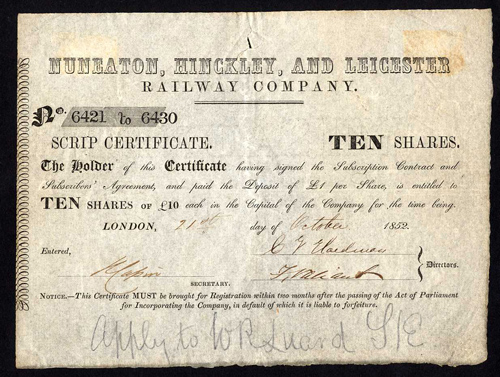 NUNEATON, HINCKLEY, AND LEICESTER
RAILWAY COMPANY.
No. 6421 to 6430
SCRIP CERTIFICATE. TEN SHARES.
The Holder of this Certificate having signed the Subscription Contract and
Subscribers' Agreement, and paid the Deposit of £1 per Share, is entitled to
TEN SHARES OF £10 each in the Capital of the Company for the time being.
LONDON, 21st day of October 1852.
Entered,
Directors.
SECRETARY.
NOTICE.—This Certificate MUST be brought for Registration within two months after the passing of the Act of Parliament
for Incorporating the Company, in default of which it is liable to forfeiture.
Apply to W